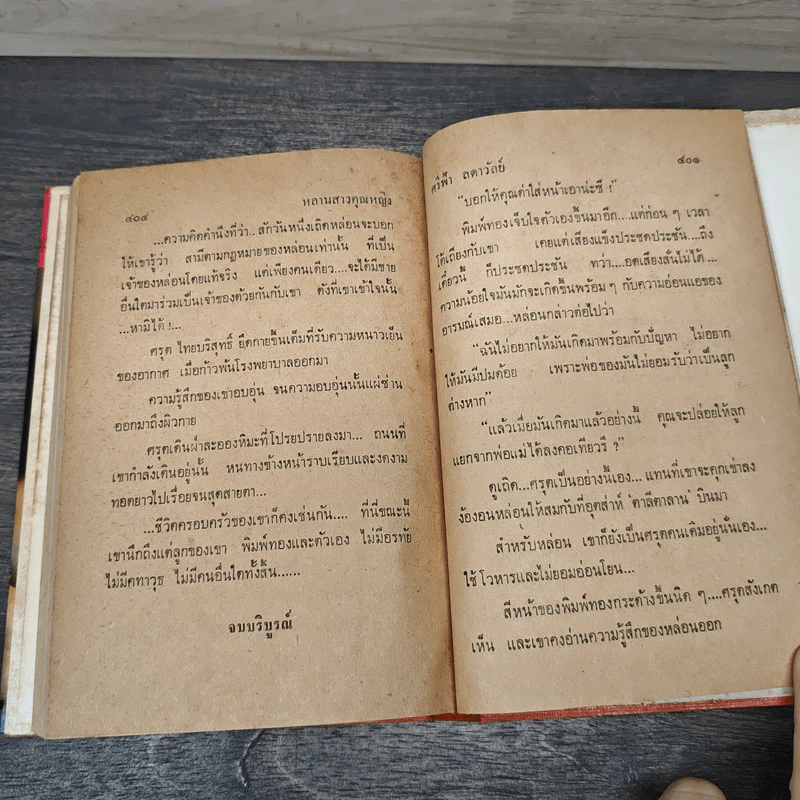 หลานสาวคุณหญิง
๔๐๔
...ความคิดคำนึงที่ว่า.. สักวันหนึ่งเถิดหล่อนจะบอก
ให้เขารู้ว่า สามีตามกฎหมายของหล่อนเท่านั้น ที่เป็น
เจ้าของหล่อนโดยแท้จริง แต่เพียงคนเดียว....จะได้มีชาย
อื่นใดมาร่วมเป็นเจ้าของด้วยกันกับเขา ดังที่เขาเข้าใจนั้น
...หามิได้ !...
ศรุต ไทยบริสุทธิ์ ยืดกายขึ้นเต็มที่รับความหนาวเย็น
ของอากาศ เมื่อก้าวพ้นโรงพยาบาลออกมา
ความรู้สึกของเขาอบอุ่น จนความอบอุ่นนั้นแผ่ซ่าน
ออกมาถึงผิวกาย
ศรุตเดินฝ่าละอองหิมะที่โปรยปรายลงมา... ถนนที่
เขากำลังเดินอยู่นั้น หนทางข้างหน้าราบเรียบและงดงาม
ทอดยาวไปเรื่อยจนสุดสายตา...
...ชีวิตครอบครัวของเขาก็คงเช่นกัน.... ที่นี่ขณะนี้
เขานึกถึงแต่ลูกของเขา พิมพ์ทองและตัวเอง ไม่มีอรทัย
ไม่มีคทาวุธ ไม่มีคนอื่นใดทั้งสิ้น......
จบบริบูรณ์
ศรีฟ้า ลดาวัลย์ ๔๐๑
“บอกให้คุณดำใส่หน้าเอาน่ะซี !”
พิมพ์ทองเจ็บใจตัวเองขึ้นมาอีก....แต่ก่อน ๆ เวลา
โต้เถียงกับเขา เคยแต่เสียงแข็งประชดประชัน....ถึง
เดี๋ยวนี้ ก็ประชดประชัน ทว่า....อดเสียงสั่นไม่ได้....
ความน้อยใจมันมักจะเกิดขึ้นพร้อม ๆ กับความอ่อนแอของ
อารมณ์เสมอ...หล่อนกล่าวต่อไปว่า
“ฉันไม่อยากให้มันเกิดมาพร้อมกับปัญหา ไม่อยาก
ให้มันมีปมด้อย เพราะพ่อของมันไม่ยอมรับว่าเป็นลูก
ต่างหาก”
“แล้วเมื่อมันเกิดมาแล้วอย่างนี้ คุณจะปล่อยให้ลูก
แยกจากพ่อแม่ได้ลงคอเทียวรึ ?”
ดูเถิด...ศรุตเป็นอย่างนี้เอง... แทนที่เขาจะคุกเข่าลง
ง้องอนหล่อนให้สมกับที่อุตส่าห์ ‘ตาลีตาลาน’ บินมา
สำหรับหล่อน เขาก็ยังเป็นศรุตคนเดิมอยู่นั่นเอง...
ใช้โวหารและไม่ยอมอ่อนโยน...
สีหน้าของพิมพ์ทองกระด้างขึ้นนิด ๆ....ศรุตสังเกต
เห็น และเขาคงอ่านความรู้สึกของหล่อนออก